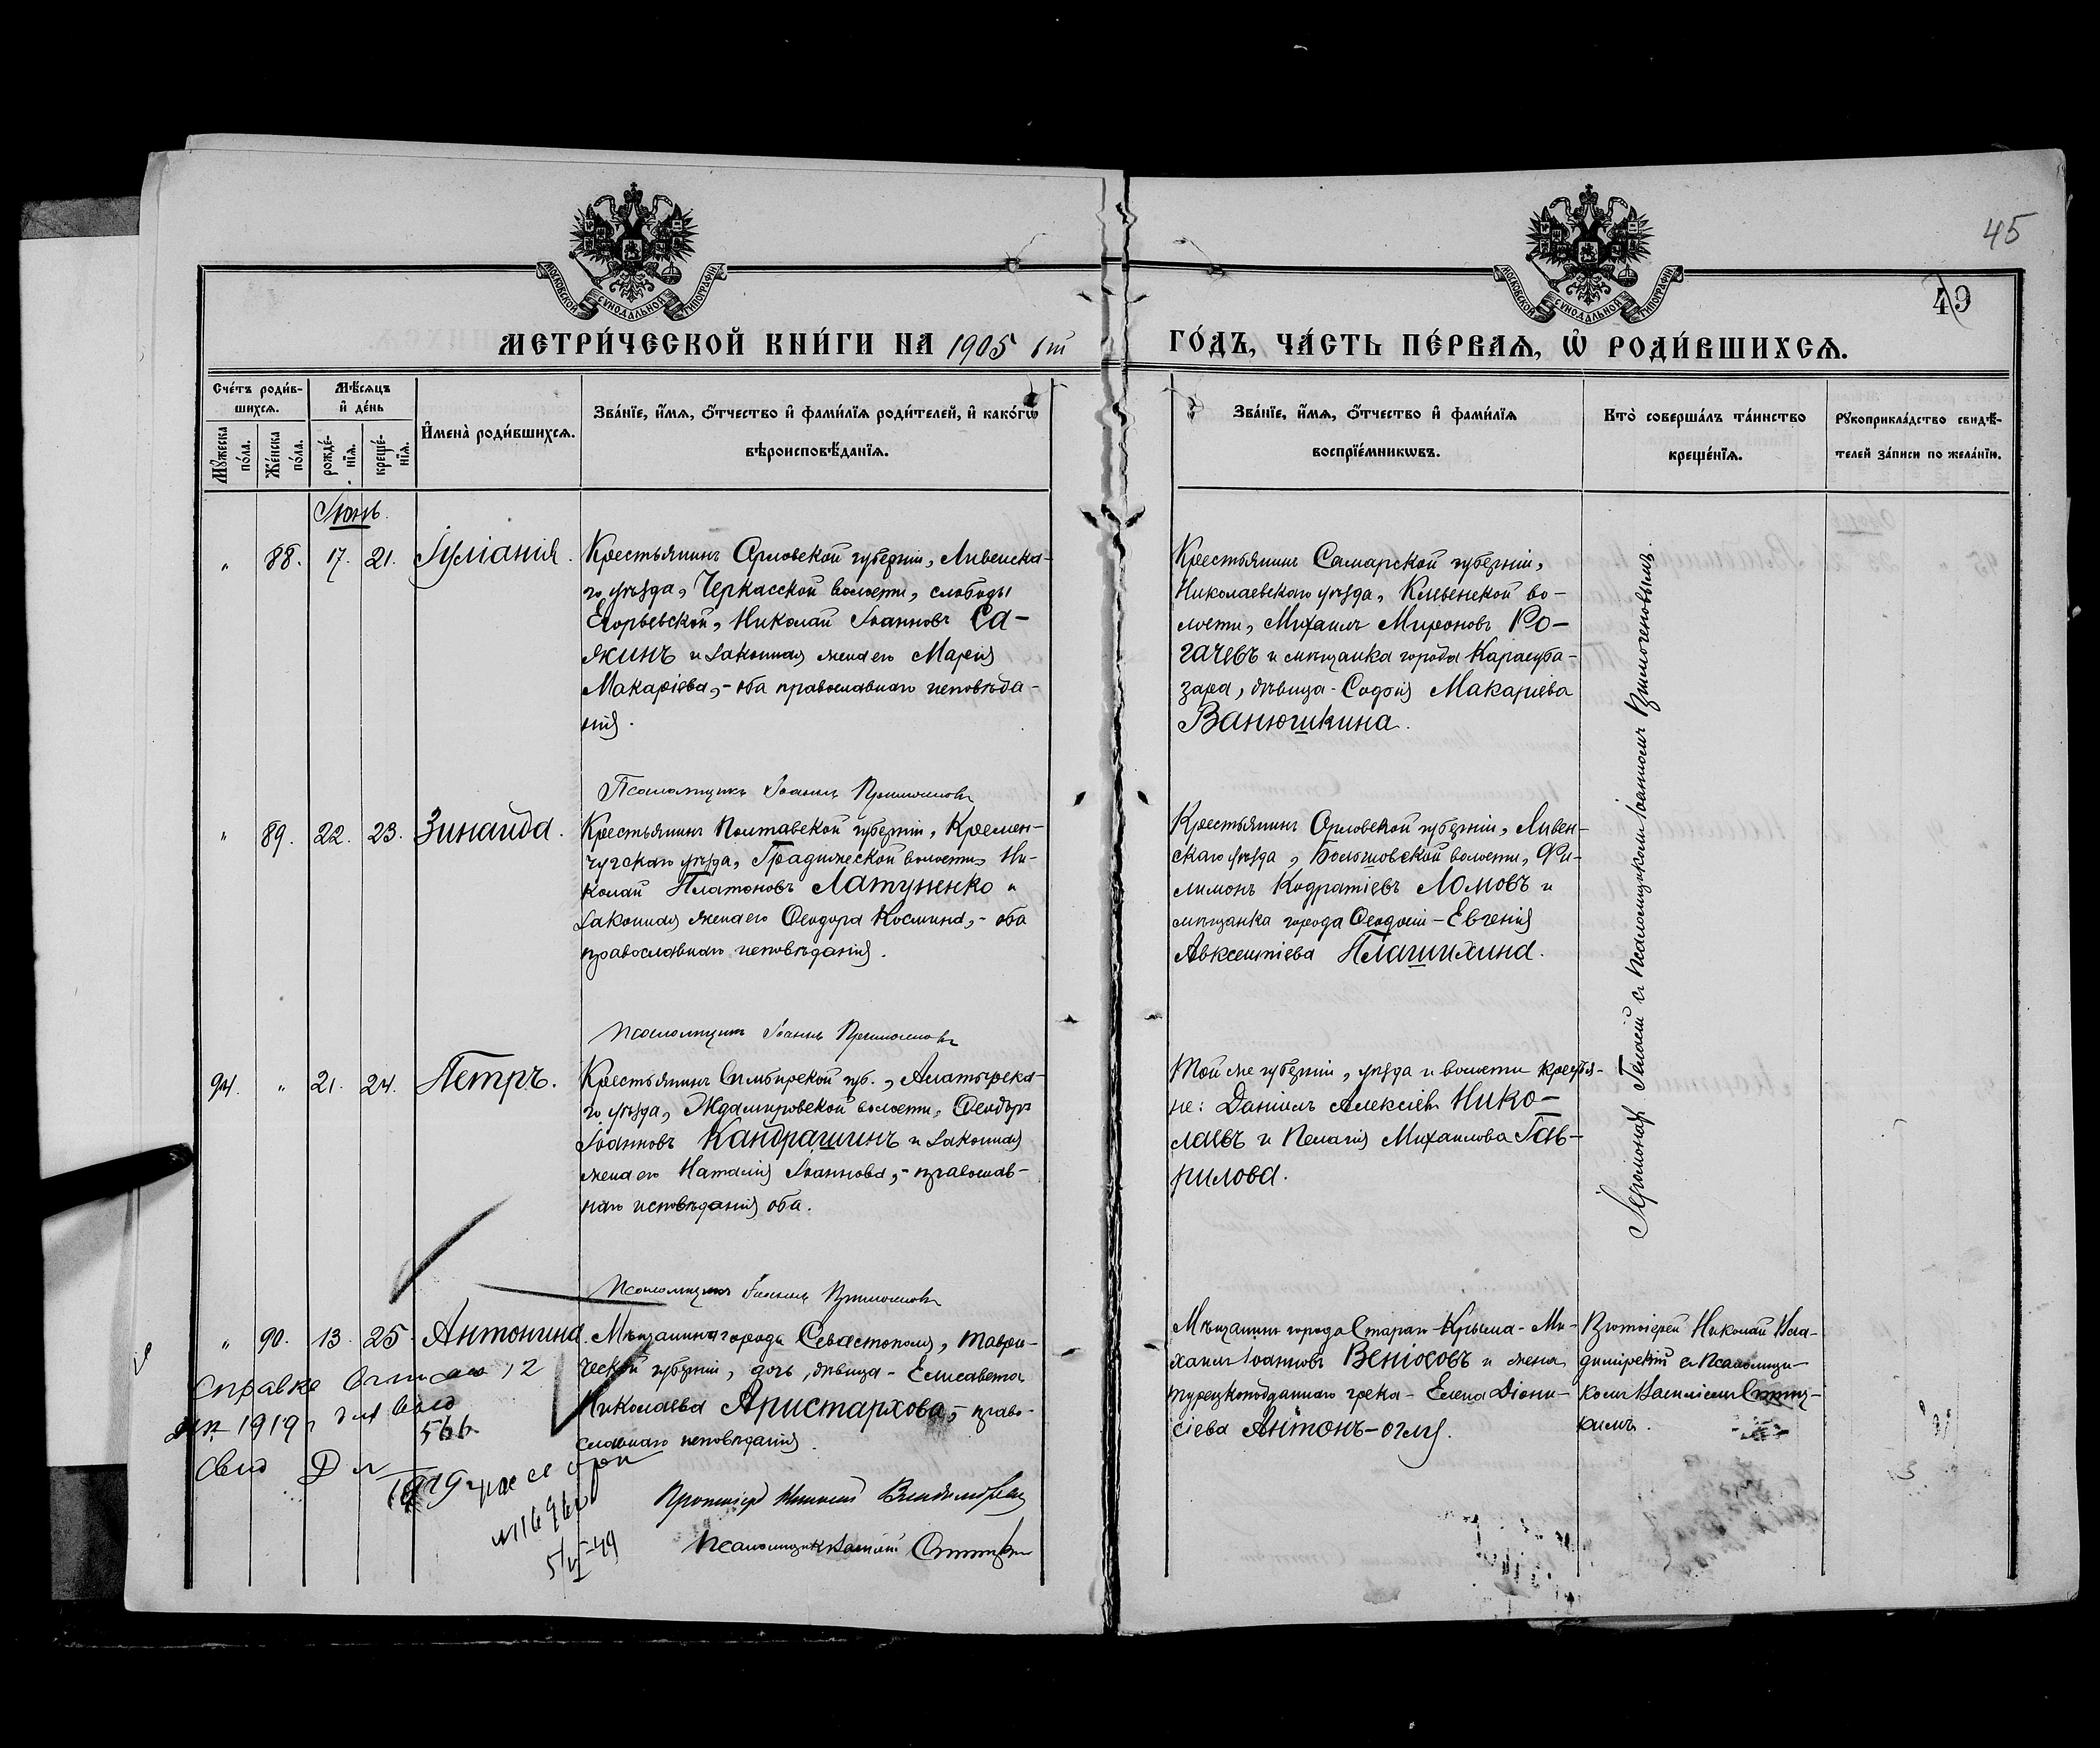 45
49
МОСКОВСКОЙ СѴНОДАЛЬНОЙ ТИПОГРАФІИ
МОСКОВСКОЙ СѴНОДАЛЬНОЙ ТИПОГРАФІИ
МЕТРИ́ЧЕСКОЙ КНИ́ГИ НА 1905 ый
ГО́ДЪ, ЧА́СТЬ ПЕ́РВАѦ, Ѡ҆ РОДИ́ВШИХСѦ.
Сче́тъ роди́в-
шихсѧ.
Мꙋ́жеска по́ла.
Же́нска по́ла.
Мѣ́сѧцъ
и҆ де́нь
рожде́-нїѧ.
креще́-нїѧ.
И҆мена̀ роди́вшихсѧ.
Зва́нїе, и҆́мѧ, ѻ҆́тчество и҆ фами́лїѧ роди́телей, и҆ како́гѡ
вѣроисповѣ́данїѧ.
Зва́нїе, и҆́мѧ, ѻ҆́тчество и҆ фами́лїѧ
воспрїе́мникѡвъ.
Кто̀ соверша́лъ та́инство
креще́нїѧ.
Рꙋкоприкла́дство свидѣ́-
телей за́писи по жела́нїю.
Іюнь.
" 88. 17. 21. Іуліанія.
Крестьянинъ Орловской губерніи, Ливенска-
го уѣзда, Черкасской волости, слободы
Егорьевской, Николай Іоанновъ Са-
якинъ и законная жена его Марія
Макаріева, - оба православнаго исповѣда-
нія.
Крестьянинъ Самарской губерніи,
Николаевскаго уѣзда, Кливенской во-
лости, Михаилъ Мироновъ Ро-
гачевъ и мѣщанка города Карасуба-
зара, дѣвица - Софія Макаріева
Ванюшкина.
Псаломщикъ Іоаннъ
" 89. 22. 23. Зинаида.
Крестьянинъ Полтавской губерніи, Кремен-
чугскаго уѣзда, Градижеской волости, Ни-
колай Платоновъ Латуненко и
законная жена его Ѳеодора Космина, - оба
православнаго исповѣданія.
Крестьянинъ Орловской губерніи, Ливен-
скаго уѣзда, волости, Фи-
лимонъ Кодратіевъ Ломовъ и
мѣщанка города Ѳеодосіи - Евгенія
Авксентіева Плашихина.
Псаломщикъ Іоаннъ
94. " 21. 24. Петръ.
Крестьянинъ Симбирской губ., Алатырска-
го уѣзда, Ждамировской волости, Ѳеодоръ
Іоанновъ Кандрашинъ и законная
жена его Наталія Іоаннова, - православ-
наго исповѣданія оба.
Той же губерніи, уѣзда и волости крестья-
не: Даніилъ Алексіевъ Нико-
лаевъ и Пелагія Михаилова Гав-
рилова.
Іеромонахъ Геласій съ псаломщикомъ Іоанномъ
Псаломщикъ Іоаннъ
" 90. 13. 25. Антонина.
Мѣщанина города Севастополя, Таври-
ческой губерніи, дочь, дѣвица - Елисавета
Николаева Аристархова, - право-
славнаго исповѣданія.
Мѣщанинъ города Стараго-Крыма - Ми-
хаилъ Іоанновъ Веніосовъ и жена
турецкоподданнаго грека - Елена Діони-
сіева Антонъ-оглу.
Протоіерей Николай Вла-
димірскій съ псаломщи-
комъ Василіемъ
Справка 12
1919 г.
566
1919
5/VI-49
Протоіерей Николай Владимірскій
Псаломщикъ Василій